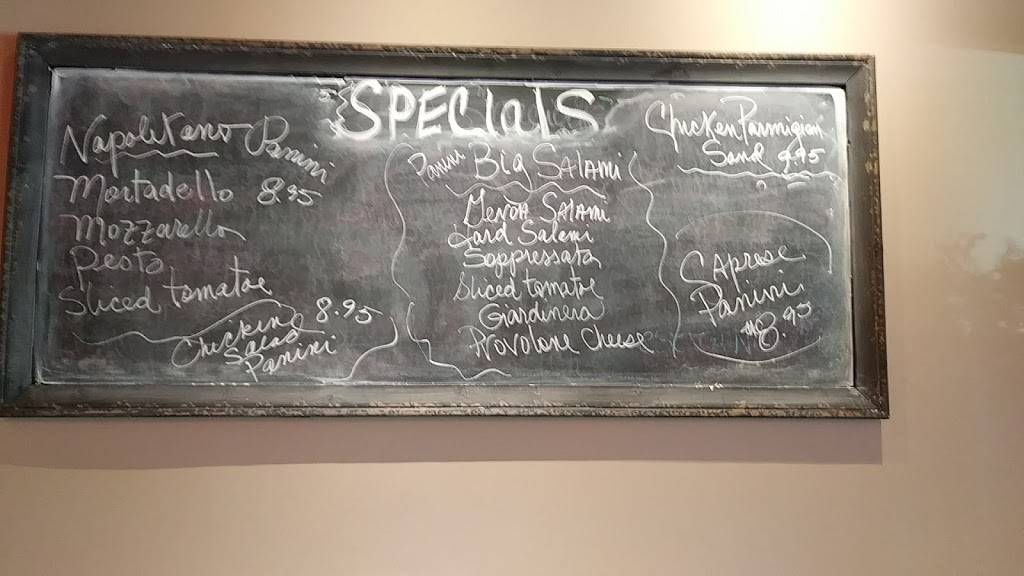 SPECIALS
Napolitano Panini
Mortadello 8.95
Mozzarella
Pesto
Sliced tomatoe
Chicken 8.95
Salad
Panini
Panini Big SALAMI
Genoa SALAMI
Hard Salami
Soppressata
Sliced tomatoe
Giardinera
Provolone Cheese
Chicken Parmigian
Sand 9.95
CAprese
Panini
8.95